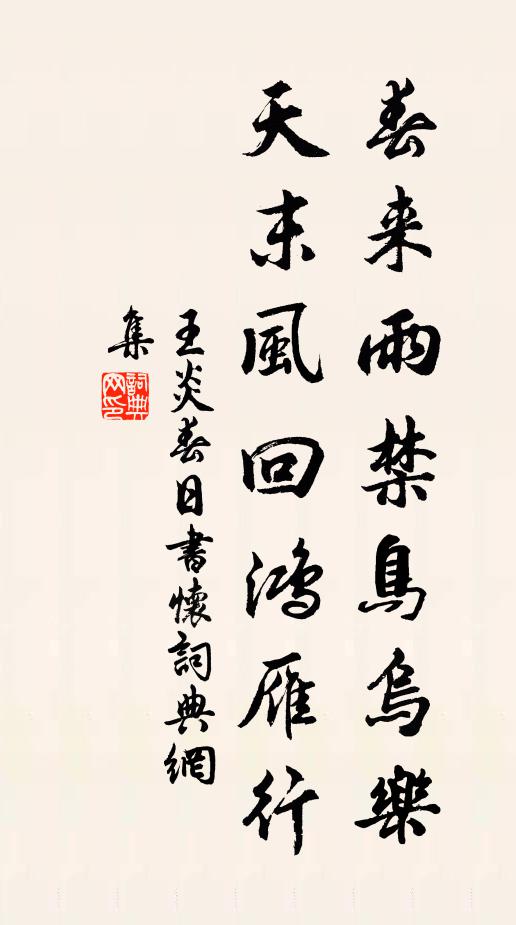 春来雨禁鳥烏樂
天末風回鴻雁行
王炎春日書懷詞典網
集
詞典
网印